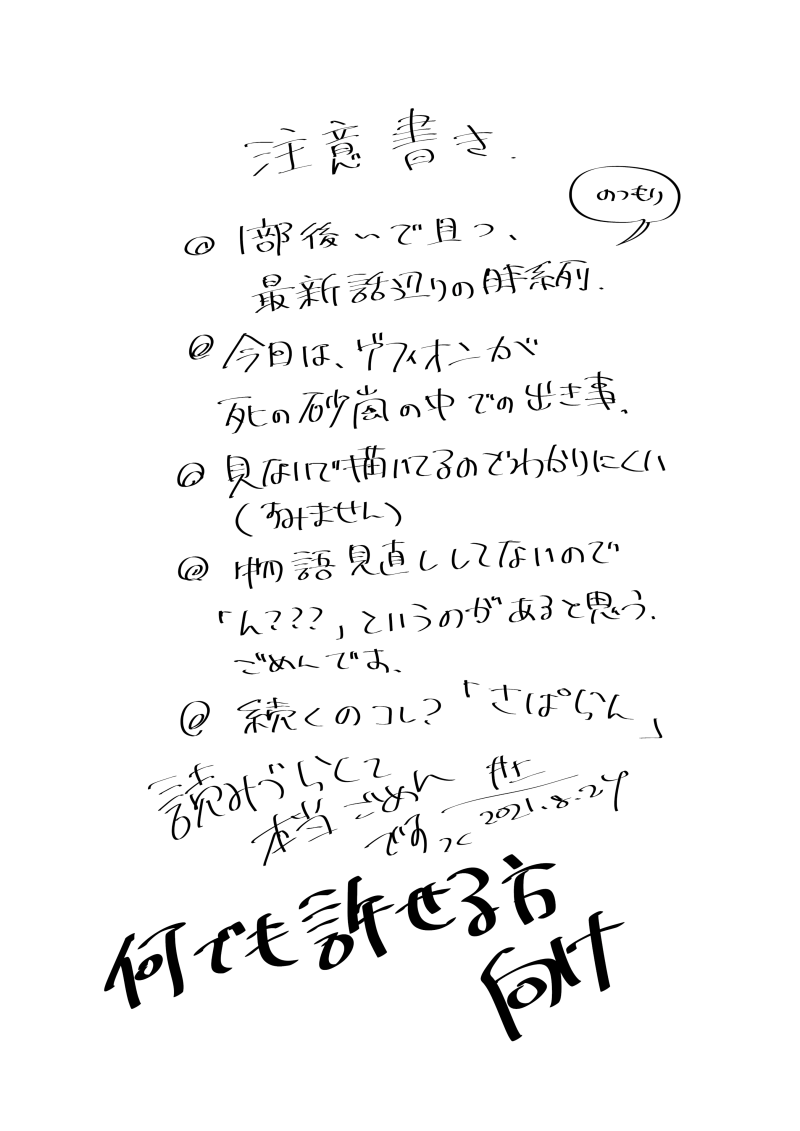 注意書き.
のつもり
@ 1部後いで且つ、
最新話辺りの時系列.
@ 今日は、ゲフィオンが
死の砂嵐の中での出き事.
@ 見ないで描いてるのでわかりにくい
(すみません)
@ 物語見直ししてないので
「ん???」というのがあると思う.
ごめんです.
@ 続くのコレ?「さぱらん」
読みづらくて
本当ごめん
です
2021.8.24
何でも許せる方
向け